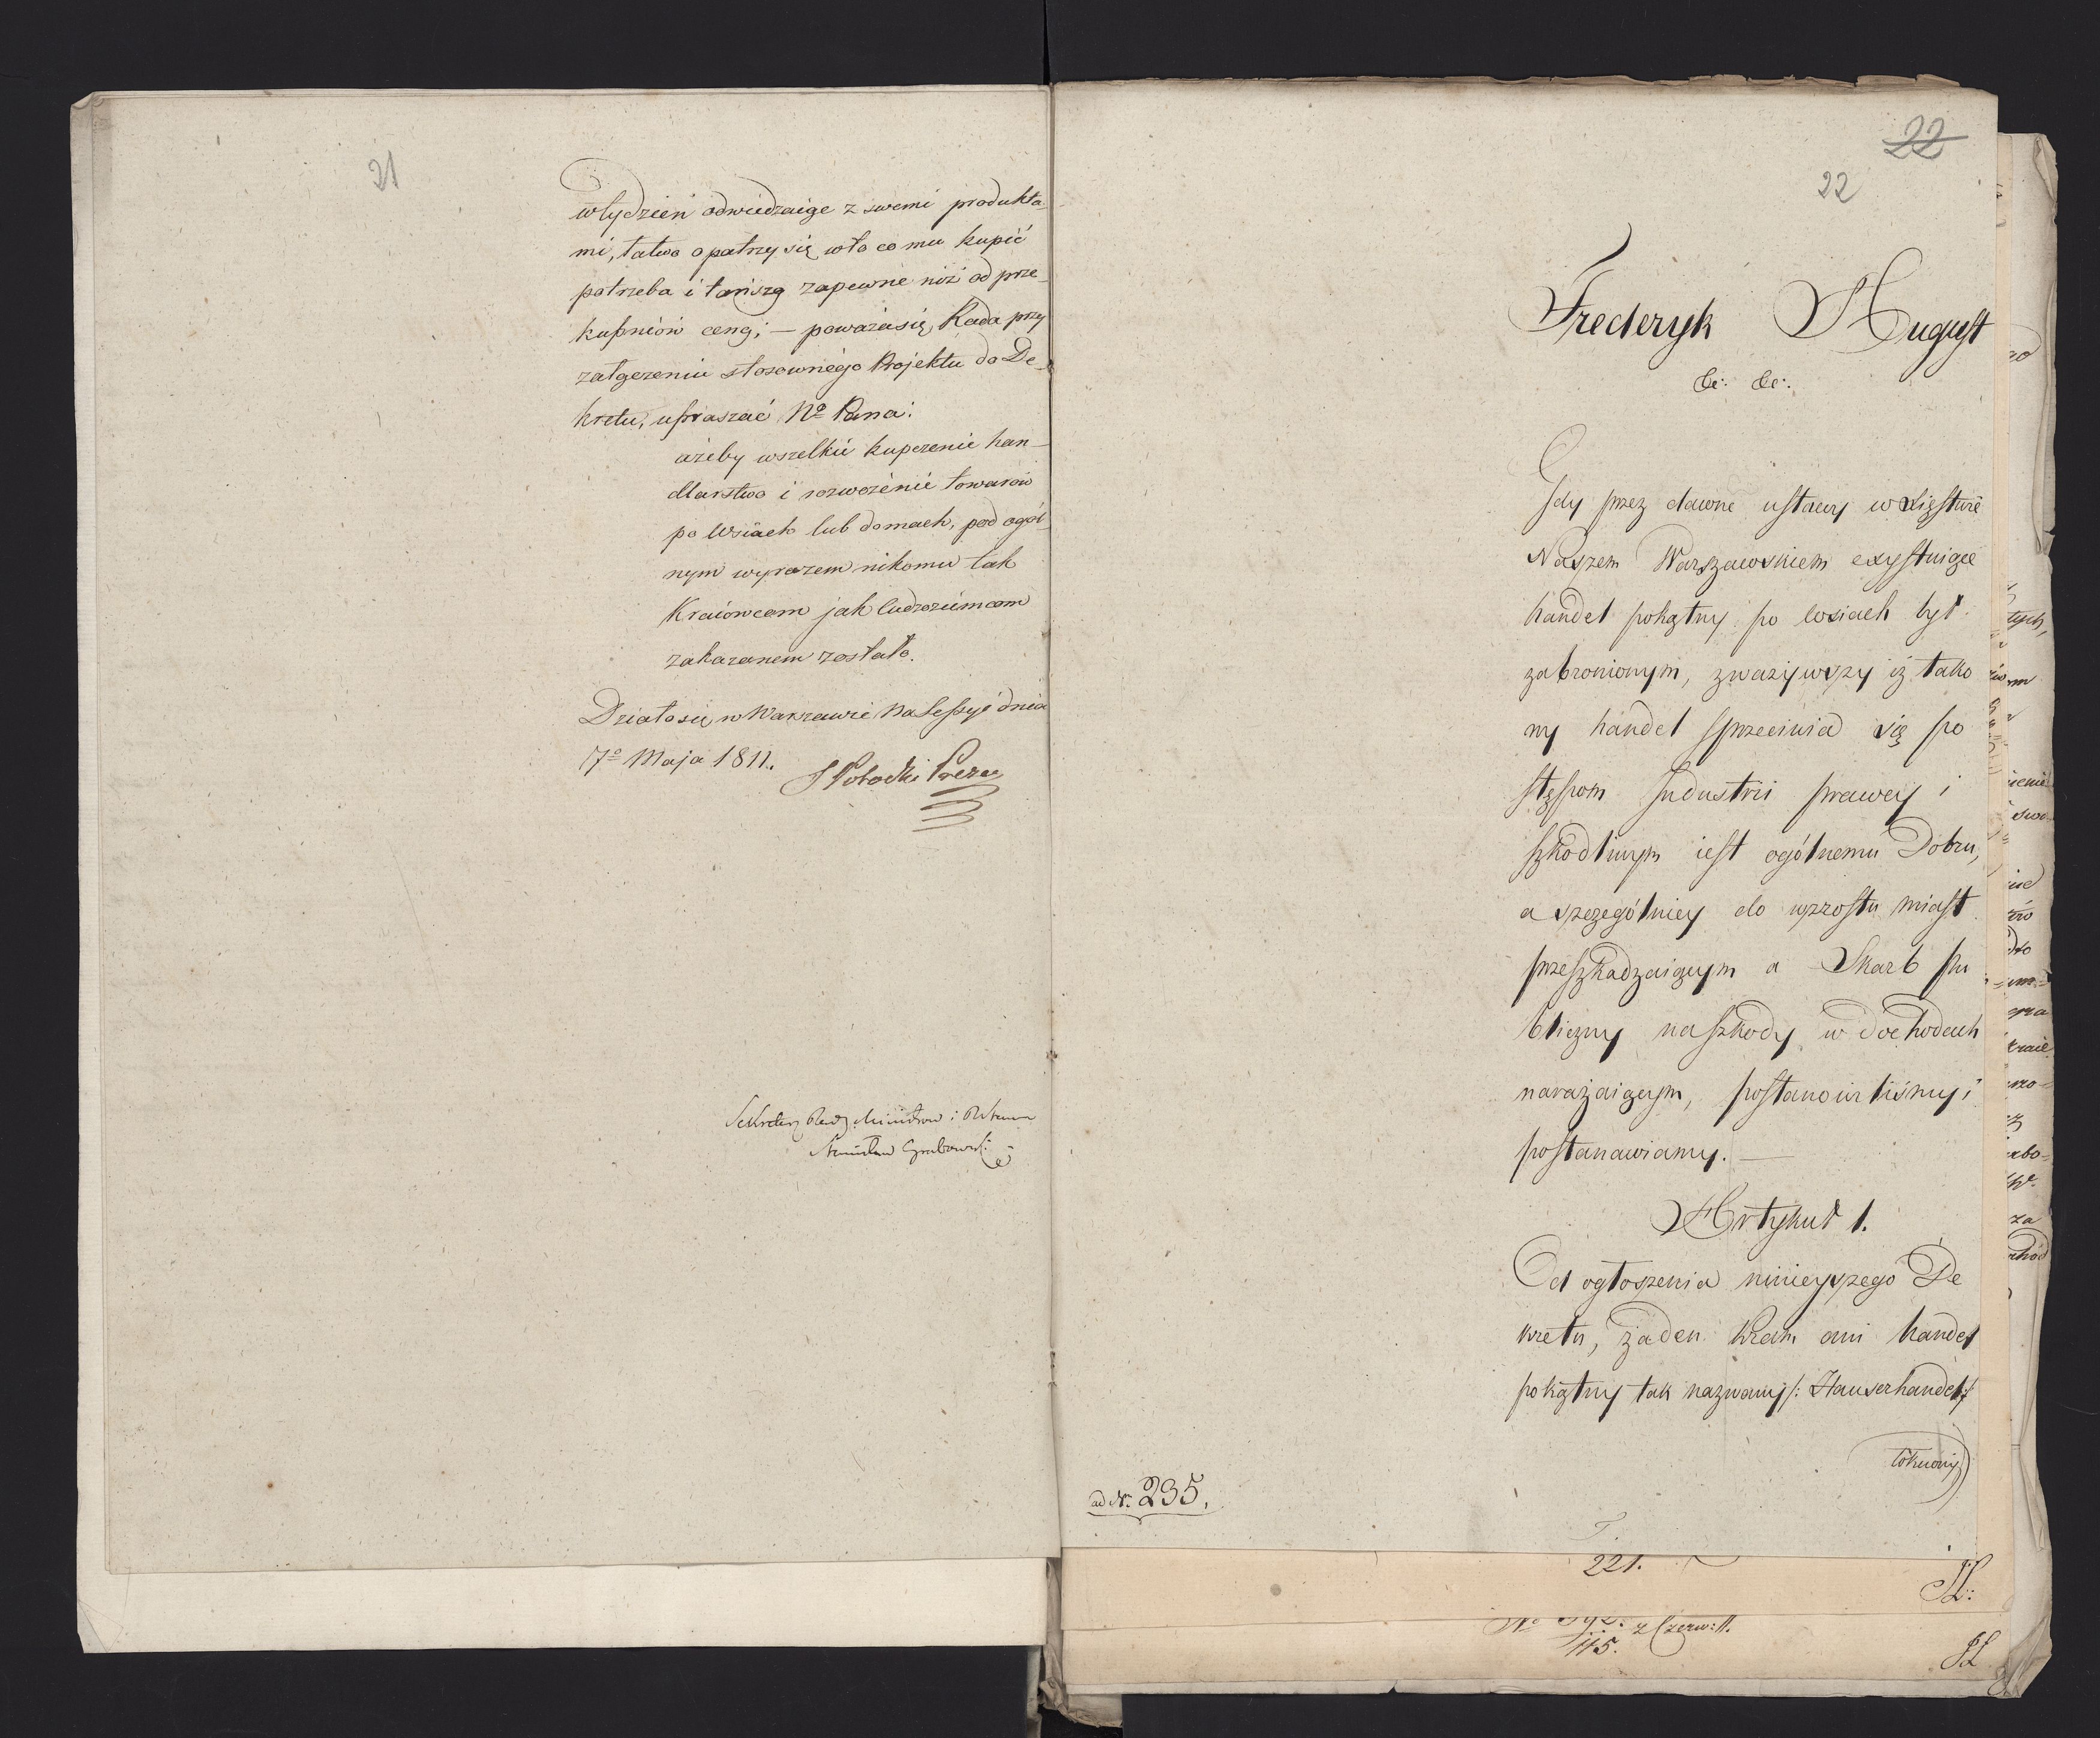 21
w tydzień odwiedzaiąc z swemi produkta-
mi, łatwo opatrzy się w to co mu kupić
potrzeba i tańszą zapewne niż od prze-
kupniów ceną; — poważa się Rada przy
załączeniu stosownego Projektu do De-
kretu, upraszać No Pana:
ażeby wszelkie kupczenie han-
dlarstwo i rozwożenie towarów
po Wsiach lub domach, pod ogól-
nym wyrazem nikomu tak
Kraiowcom jak Cudzoziemcom
zakazanem zostało.
Działo się w Warszawie na Sessyi dnia
7o Maja 1811.
S Potocki Prezes
Sekretarz Rady Ministrów i Stanu
Stanisław Grabowski
22
22
Frederyk August
&c: &c:
Gdy przez dawne ustawy w Xięstwie
Naszem Warszawskiem exystuiące
handel pokątny po wsiach był
zabronionym, zważywszy iż tako
wy handel sprzeciwia się po
stępom Industrii prawey i
szkodliwym iest ogólnemu Dobru,
a szczególniey do wzrostu miast
przeszkadzaiącym a Skarb pu
bliczny na szkody w dochodach
narażaiącym, postanowiliśmy i
postanawiamy. —
Artykuł 1.
Od ogłoszenia ninieyszego De
kretu, żaden kram ani handel
pokątny tak nazwany /: Hauserhandel :/
ad Nr. 235.
221.
SL:
z Czerw: 11.
115.
SL